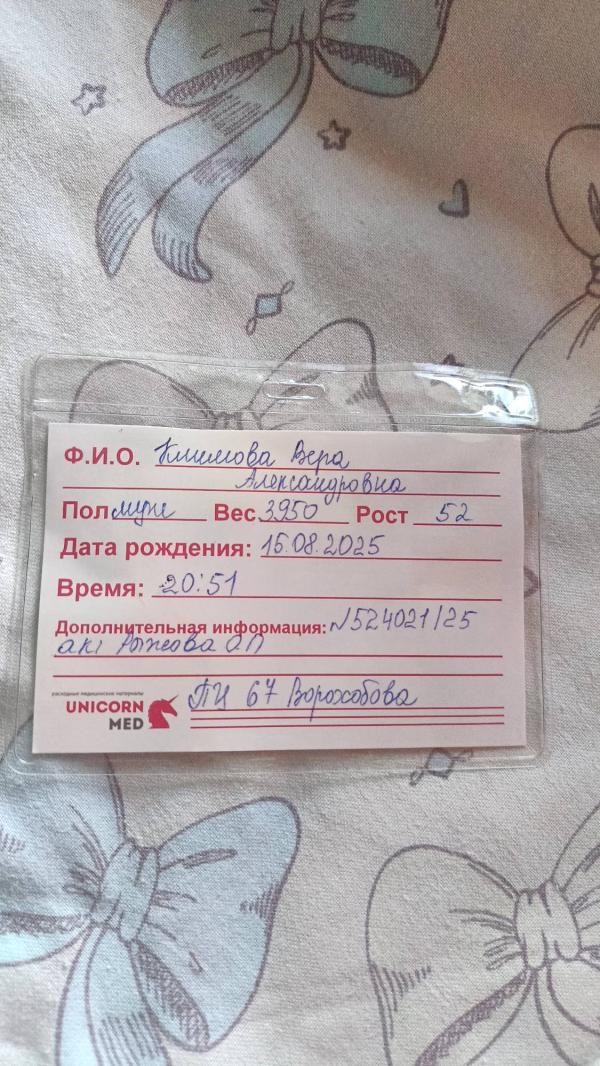 Ф.И.О. Климова Вера
Александровна
Пол муж Вес 3950 Рост 52
Дата рождения: 15.08.2025
Время: 20:51
Дополнительная информация: N524021/25
акі Рыжова О П
расходные медицинские материалы
UNICORN
MED
ПЦ 67 Ворохобова